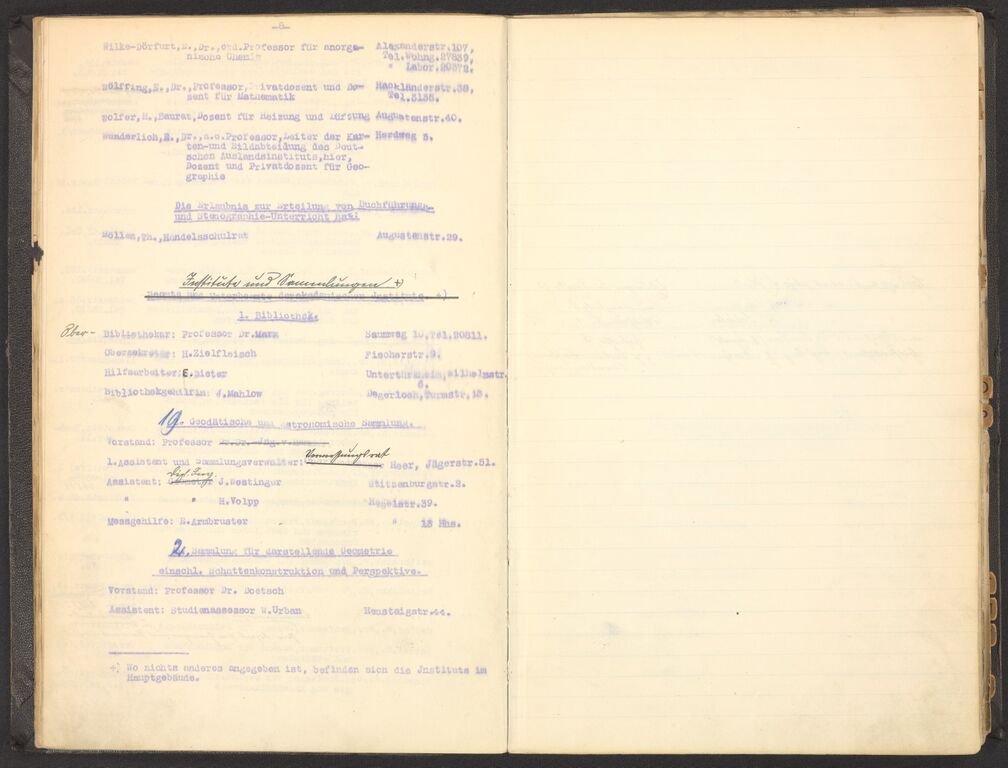 -8-
Wilke-Dörfurt,E.,Dr.,ord.Professor für anorga- Alexanderstr.107,
nische Chemie Tel.Wohng.27839,
" Labor.20372.
Wölffing,E.,Dr.,Professor,Privatdozent und Do- Hackländerstr.38,
zent für Mathematik Tel.5138.
Wolfer,H.,Baurat,Dozent für Heizung und Lüftung Augustenstr.40.
Wunderlich,E.,Dr.,a.o.Professor,Leiter der Kar- Herdweg 5.
ten-und Bildabteilung des Deut-
schen Auslandsinstituts,hier,
Dozent und Privatdozent für Geo-
graphie
Die Erlaubnis zur Erteilung von Buchführungs-
und Stenographie-Unterricht hat:
Möllen,Th.,Handelsschulrat Augustenstr.29.
Institute und Sammlungen +)
Beamte und Unterbeamte der akademischen Jnstitute. +)
1. Bibliothek.
Ober- Bibliothekar: Professor Dr.Marx Saumweg 10,Tel.20811.
Obersekretär: H.Zielfleisch Fischerstr.9.
Hilfsarbeiter: E.Dieter Untertürkheim,Wilhelmstr.
6.
Bibliothekgehilfin: J.Mahlow Degerloch,Turmstr.18.
19. Geodätische und astronomische Sammlung.
Vorstand: Professor Dr. Jng.v.
1.Assistent und Sammlungsverwalter: Vermessungsrat Heer, Jägerstr.51.
Dipl. Ing.
Assistent: J.Westinger Stitzenburgstr.2.
" " H.Volpp Hegelstr.39.
Messgehilfe: E.Armbruster " 18 Hhs.
2. Sammlung für darstellende Geometrie
einschl. Schattenkonstruktion und Perspektive.
Vorstand: Professor Dr. Doetsch
Assistent: Studienassessor W.Urban Neusteigstr.44.
+) Wo nichts anderes angegeben ist, befinden sich die Jnstitute im
Hauptgebäude.